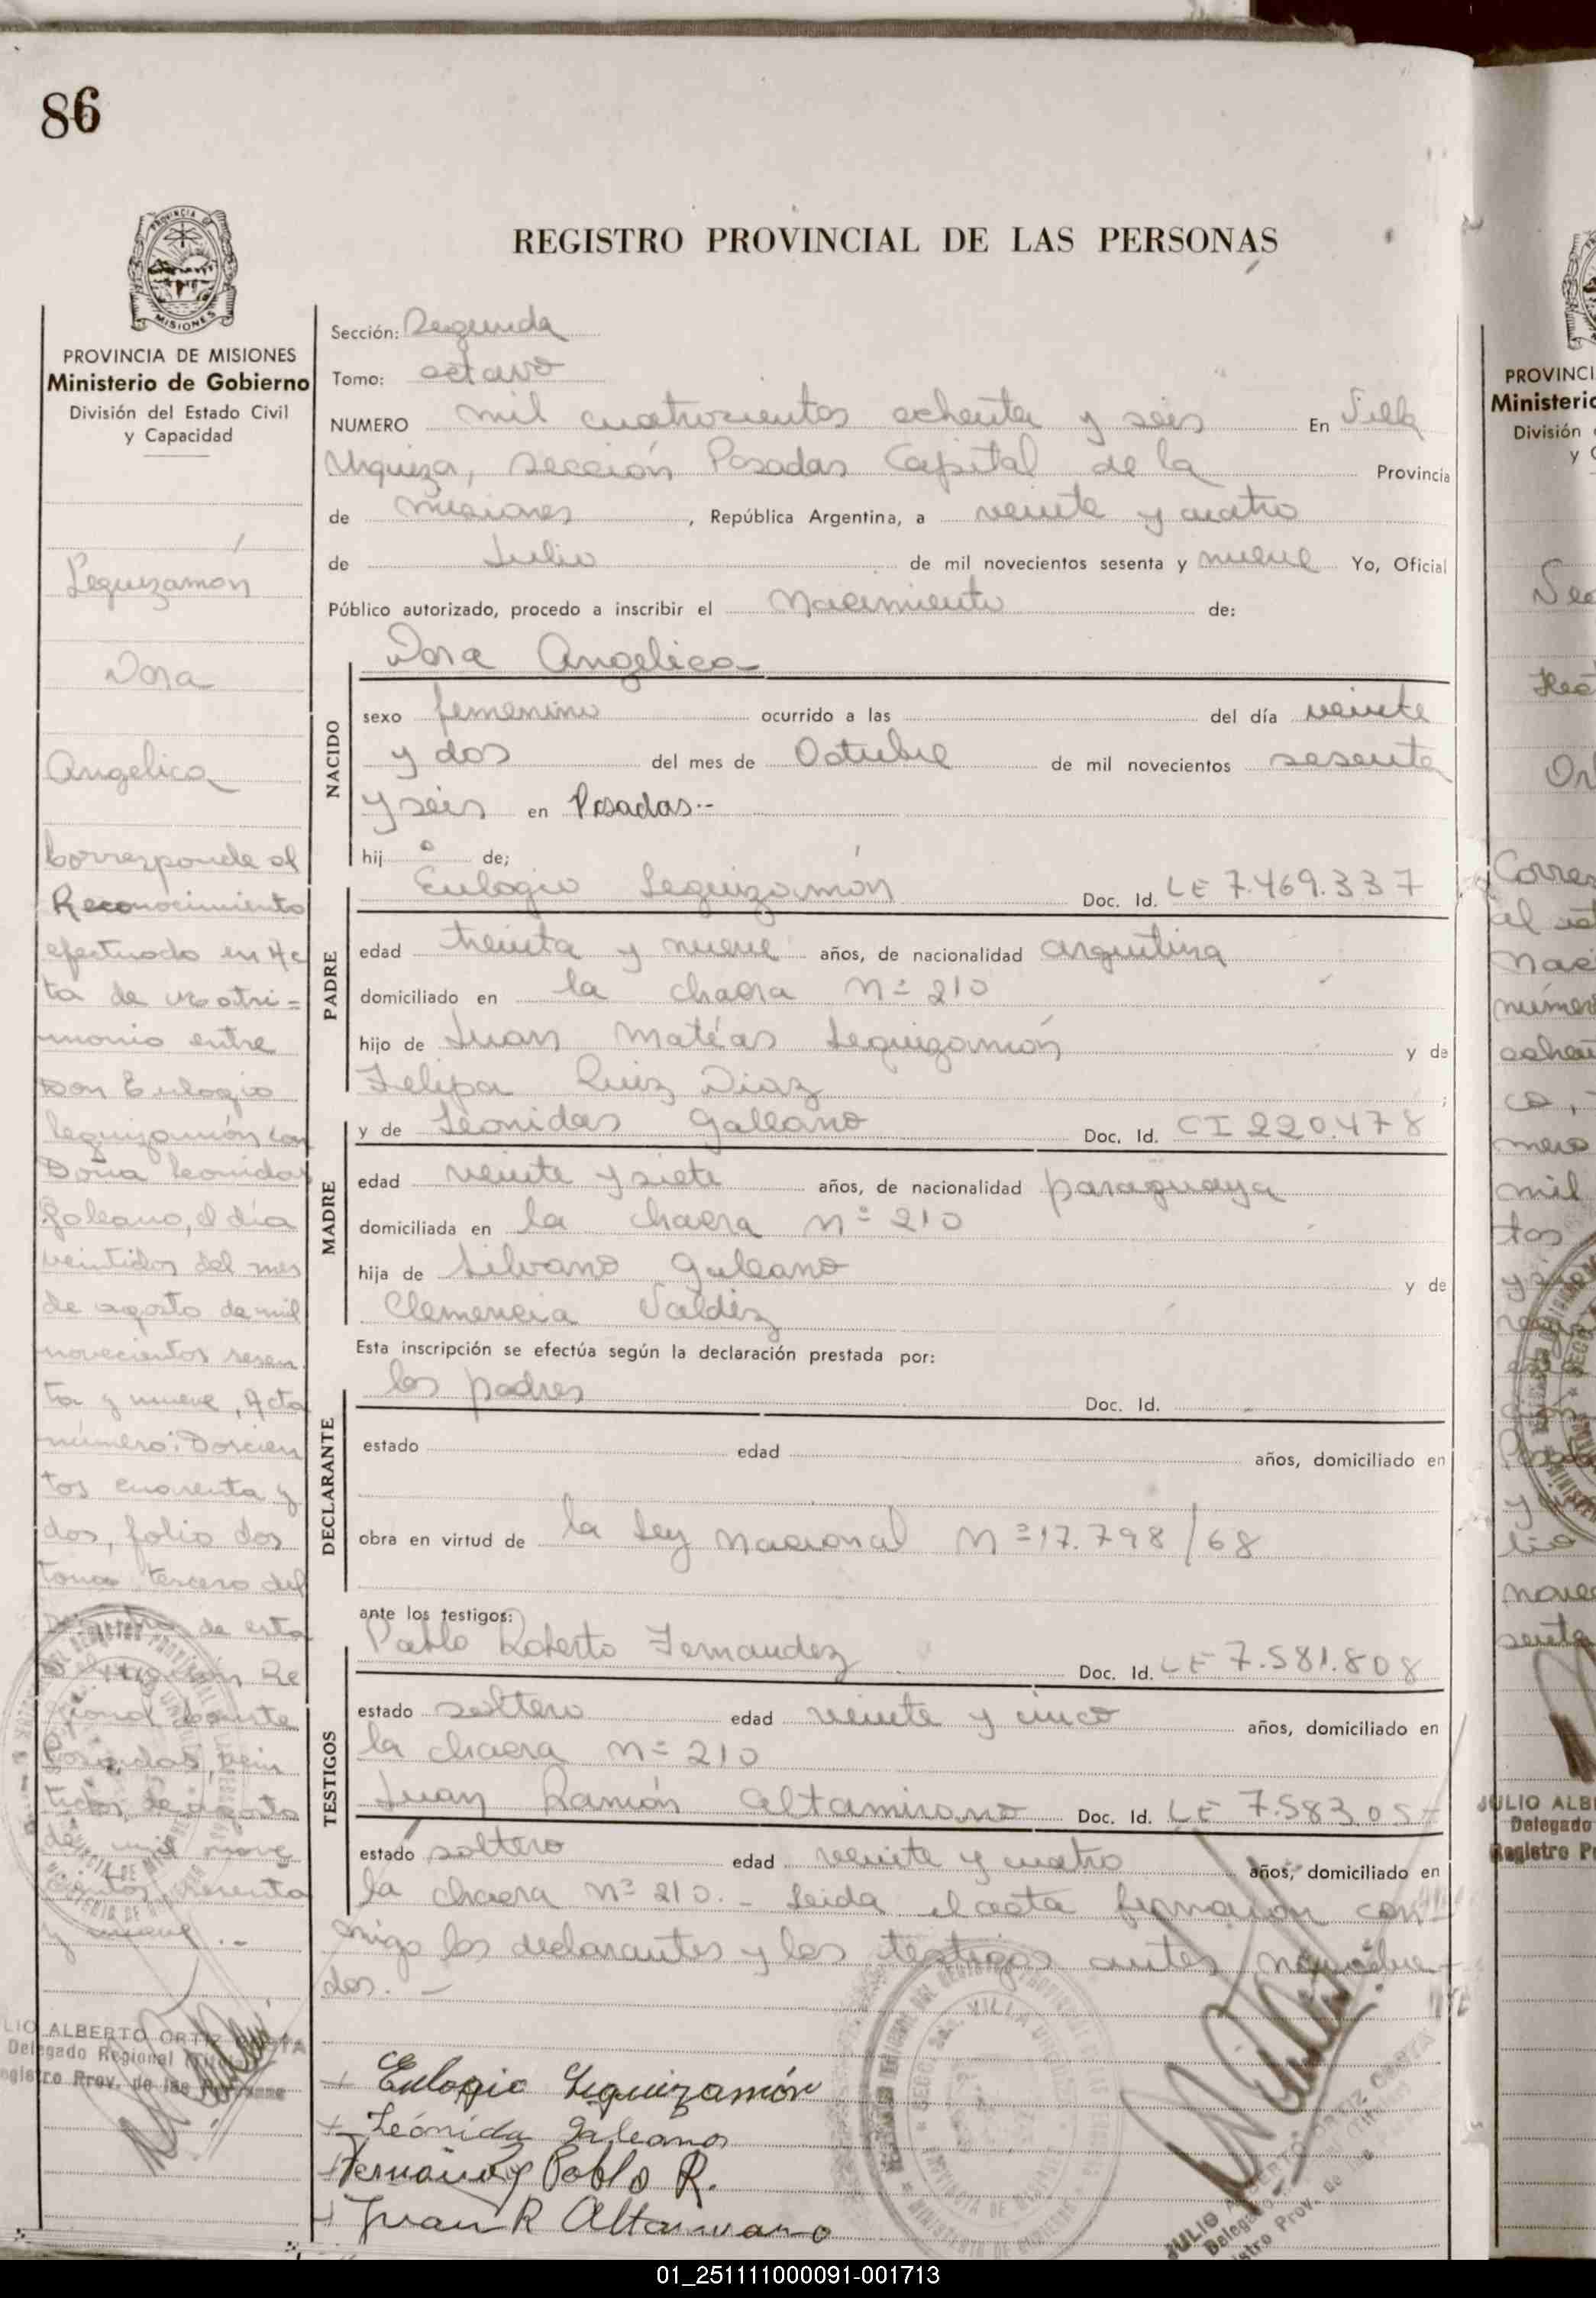 86
REGISTRO PROVINCIAL DE LAS PERSONAS
MISIONES
PROVINCIA DE MISIONES
Ministerio de Gobierno
División del Estado Civil
y Capacidad
Leguizamón
Dora
Angelica
Corresponde al
Reconocimiento
efectuado en Ac
ta de Matri=
monio entre
Don Eulogio
Leguizamón con
Doña Leonidas
Galeano, el día
veintidos del mes
de agosto de mil
novecientos sesen
ta y nueve, Acta
número: Doscien
tos cuarenta y
dos, folio dos
tomo tercero del
de esta
Re
gional
Posadas, vein
tidos de agosto
de mil nove
cientos sesenta
y nueve.--
ALBERTO ORTIZ
Delegado Regional
Registro Prov. de las Personas
Sección: Segunda
Tomo: octavo
NUMERO mil cuatrocientos ochenta y seis En Villa
Urquiza, sección Posadas Capital de la Provincia
de Misiones, República Argentina, a veinte y cuatro
de Julio de mil novecientos sesenta y nueve Yo, Oficial
Público autorizado, procedo a inscribir el Nacimiento de:
Dora Angelica
NACIDO
sexo femenino ocurrido a las del día veinte
y dos del mes de Octubre de mil novecientos sesenta
y seis en Posadas.--
hij a de;
PADRE
Eulogio Leguizamón Doc. Id. LE 7.469.337
edad treinta y nueve años, de nacionalidad argentina
domiciliado en la chacra Nº 210
hijo de Juan Matéas Leguizamón y de
Felipa Ruiz Diaz
MADRE
y de Leonidas Galeano Doc. Id. CI 220.478
edad veinte y siete años, de nacionalidad paraguaya
domiciliada en la chacra Nº 210
hija de Silvano Galeano y de
Clemencia Valdéz
Esta inscripción se efectúa según la declaración prestada por:
DECLARANTE
los padres Doc. Id.
estado edad años, domiciliado en
obra en virtud de la Ley Nacional Nº 17.798/68
ante los testigos:
TESTIGOS
Pablo Roberto Fernandez Doc. Id. LE 7.581.808
estado soltero edad veinte y cinco años, domiciliado en
la chacra Nº 210
Juan Ramón Altamirano Doc. Id. LE 7.583.05
estado soltero edad veinte y cuatro años, domiciliado en
la chacra Nº 210. - Leida el acta firmaron con
migo los declarantes y los testigos antes nombra
dos. -
Eulogio Leguizamón
Leónida Galeano
Fernandez Pablo R.
Juan R Altamirano
VILLA URQUIZA
JULIO ALBERTO ORTIZ
PROVINCI
Ministerio
División
y C
Corres
al
Nac
número
mil
tos
JULIO ALBE
Delegado
Registro Pr
01_251111000091-001713